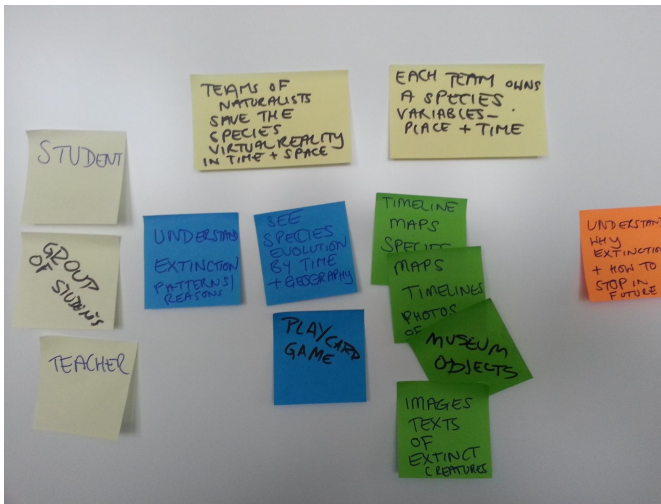 TEAMS OF
NATURALISTS
SAVE THE
SPECIES
VIRTUAL REALITY
IN TIME + SPACE
EACH TEAM OWNS
A SPECIES
VARIABLES –
PLACE + TIME
STUDENT
GROUP
OF STUDENTS
TEACHER
UNDERSTAND
EXTINCTION
PATTERNS/
REASONS
SEE
SPECIES
EVOLUTION
BY TIME
+ GEOGRAPHY
PLAY CARD
GAME
TIMELINE
MAPS
SPECIES
MAPS
TIMELINES
PHOTOS
OF
MUSEUM
OBJECTS
IMAGES
TEXTS
OF
EXTINCT
CREATURES
UNDERSTAND
WHY
EXTINCTION
+ HOW TO
STOP IN
FUTURE